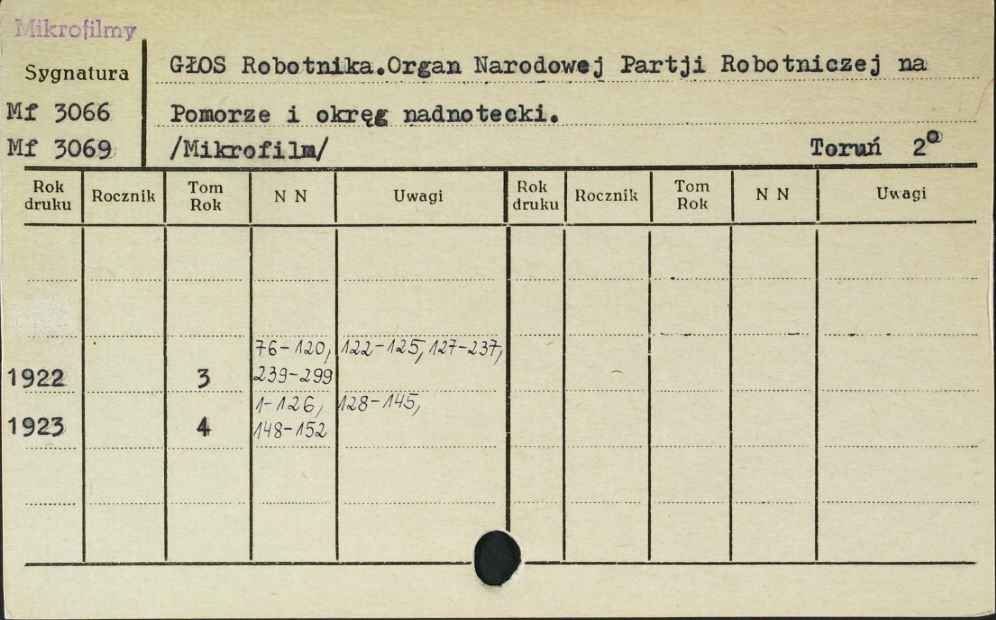 Mikrofilmy
Sygnatura
Mf 3066
Mf 3069
GŁOS Robotnika.Organ Narodowej Partji Robotniczej na
Pomorze i okręg nadnotecki.
/Mikrofilm/ Toruń 2º
Rok druku Rocznik Tom Rok N N Uwagi Rok druku Rocznik Tom Rok N N Uwagi
76-120, 122-125, 127-237,
1922 3 239-299
1-126, 128-145,
1923 4 148-152